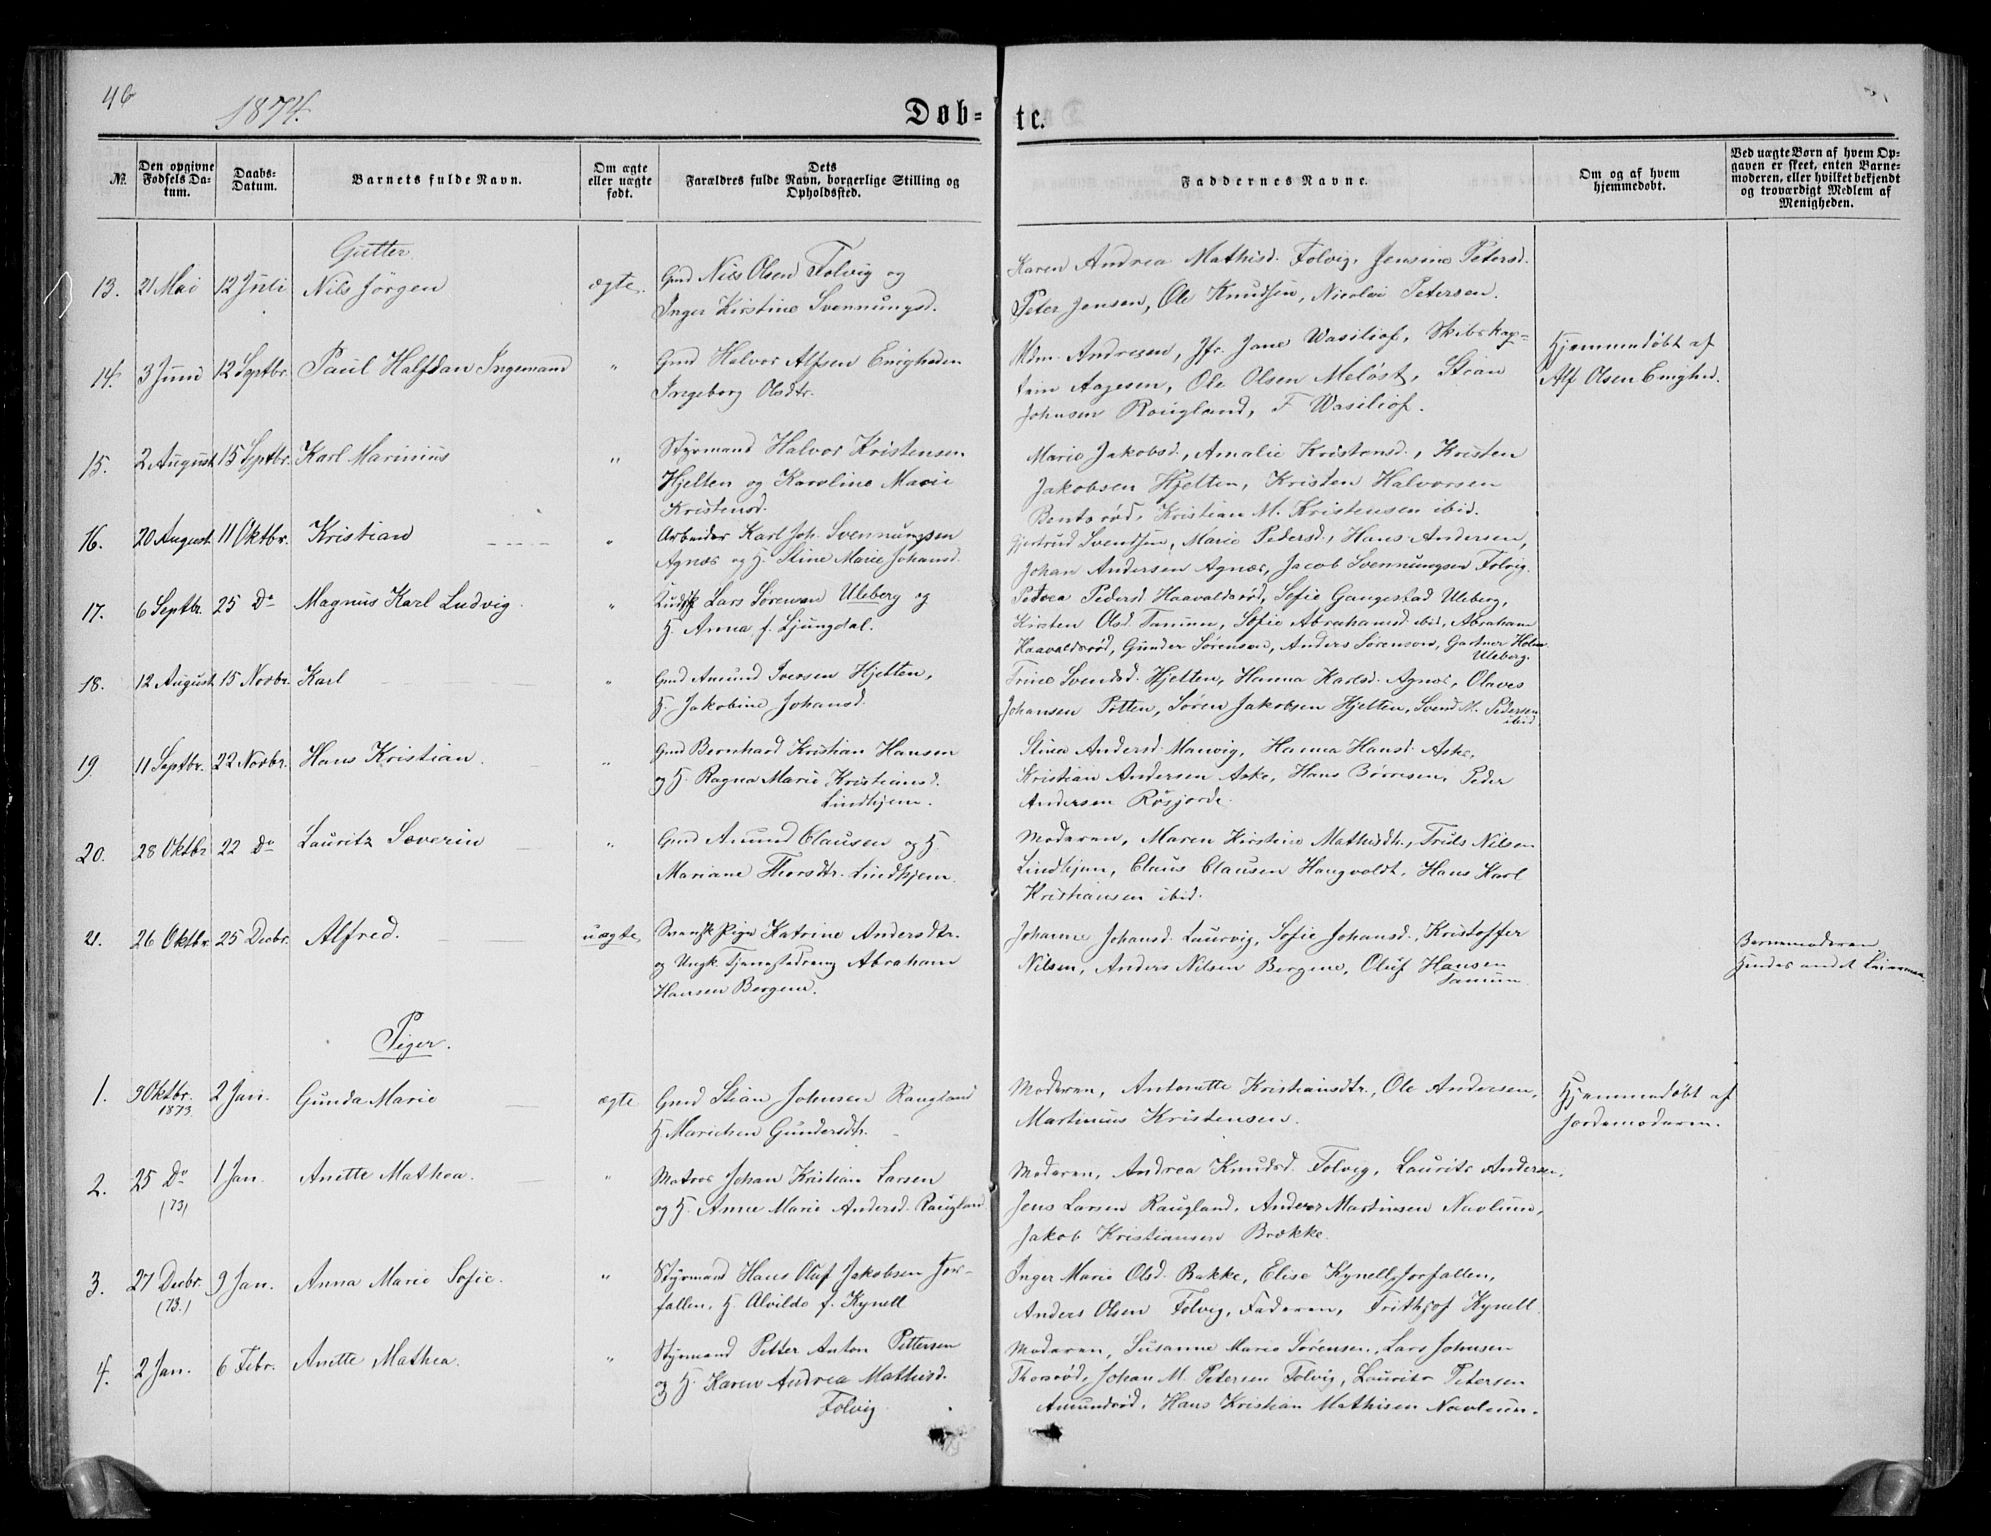 46
1874.
Døb-
te.
No.
Den opgivne Fødsels Datum.
Daabs-Datum.
Barnets fulde Navn.
Om ægte eller uægte født.
Dets Forældres fulde Navn, borgerlige Stilling og Opholdssted.
Faddernes Navne.
Om og af hvem hjemmedøbt.
Ved uægte Børn af hvem Opgaven er skeet, enten Barnemoderen, eller hvilket bekjendt og troværdigt Medlem af Menigheden.
Gutter
13. 21 Mai 12 Juli Nils Jörgen ægte. Gmd Nils Olsen Folvig og
Inger Kirstine Svennungsd.
Karen Andrea Mathisd. Folvig, Jensine Petersd.
Peter Jensen, Ole Knudsen, Nicolai Petersen.
14. 3 Juni 12 Septbr. Paul Halfdan Ingemand " Gmd Halvor Alfsen Enigheden
Ingeborg Olsdtr.
Mdm. Andresen, Jfr. Jane Wasiliof, Skibskap-
tein Aagesen, Ole Olsen Meløst, Stian
Johnsen Raugland, F Wasiliof.
Hjemmedøbt af
Alf Olsen Enighed.
15. 2 August 15 Septbr. Karl Marinius " Styrmand Halvor Kristensen
Hjelten og Karoline Marie
Kristensd.
Marie Jakobsd., Amalie Kristensd., Kristen
Jakobsen Hjelten, Kristen Halvorsen
Bentsrød, Kristian M. Kristensen ibid.
16. 20 August 11 Oktbr. Kristian " Arbeider Karl Joh. Svennungsen
Agnæs og H. Stine Marie Johansd.
Gjertrud Svendsen, Marie Pedersd., Hans Andersen,
Johan Andersen Agnæs, Jacob Svennungsen Folvig.
17. 6 Septbr. 25 Do Magnus Karl Ludvig. " Lars Sørensen Uleberg og
H. Anna f. Ljungdal.
Petrea Pedersd. Haavaldsrød, Sofie Gangestad Uleberg,
Kirsten Olsd. Tanum, Sofie Abrahamsd. ibid, Abraham
Haavaldsrød, Gunder Sørensen, Anders Sørensen, Gartner Holm
Uleberg.
18. 12 August 15 Novbr. Karl " Gmd Amund Iversen Hjelten,
H. Jakobine Johansd.
Trine Svendsd. Hjelten, Hanna Karlsd. Agnæs, Olaves
Johansen Potten, Søren Jakobsen Hjelten, Svend M. Pedersen
ibid
19 11 Septbr. 22 Novbr. Hans Kristian. " Gmd Bernhard Kristian Hansen
og H. Ragna Marie Kristiansd.
Lindhjem.
Stina Andersd. Manvig, Hanna Hansd. Aske,
Kristian Andersen Aske, Hans Börresen, Peder
Andersen Røsjorde.
20. 28 Oktbr 22 Do Lauritz Severin " Gmd Amund Clausen og H.
Mariane Thorsdtr. Lindhjem.
Moderen, Maren Kirstine Mathisdtr., Truls Nilsen
Lindhjem, Claus Clausen Haugvoldt, Hans Karl
Kristiansen ibid.
21. 26 Oktbr. 25 Decbr. Alfred. uægte Svensk Pige Katrine Andersdtr.
og Ungk. Tjenestedreng Abraham
Hansen Bergene.
Johanne Johansd. Laurvig, Sofie Johansd., Kristoffer
Nilsen, Anders Nilsen Bergene, Oluf Hansen
Tanum.
Barnemoderen
Hendes andet Leiermaal
Piger.
1. 9 Oktbr. 1873 2 Jan. Gunda Marie ægte Gmd Stian Johnsen Raugland
H. Marichen Gundersdtr.
Moderen, Antonette Kristiansdtr., Ole Andersen,
Martinius Kristensen.
Hjemmedøbt af
Jordemoderen.
2. 25 Do (73) 1 Jan. Anette Mathea. " Matros Johan Kristian Larsen
og H. Anne Marie Andersd. Raugland
Moderen, Andrea Knudsd. Folvig, Laurits Andersen,
Jens Larsen Raugland, Anders Martinsen Navlum,
Jakob Kristiansen Brække.
3. 27 Decbr. (73.) 9 Jan. Anna Marie Sofie. " Styrmand Hans Oluf Jakobsen Jor-
fallen, H. Alvilde f. Kynell
Inger Marie Olsd. Bakke, Elise Kynell Jorfallen,
Anders Olsen Folvig, Faderen, Frithjof Kynell.
4. 2 Jan. 6 Febr. Anette Mathea. " Styrmand Petter Anton Pettersen
og H. Karen Andrea Mathisd.
Folvig
Moderen, Susanne Marie Sørensen, Lars Johnsen
Thorsrød, Johan M. Petersen Folvig, Laurits Petersen
Amundrød, Hans Kristian Mathisen Navlum.